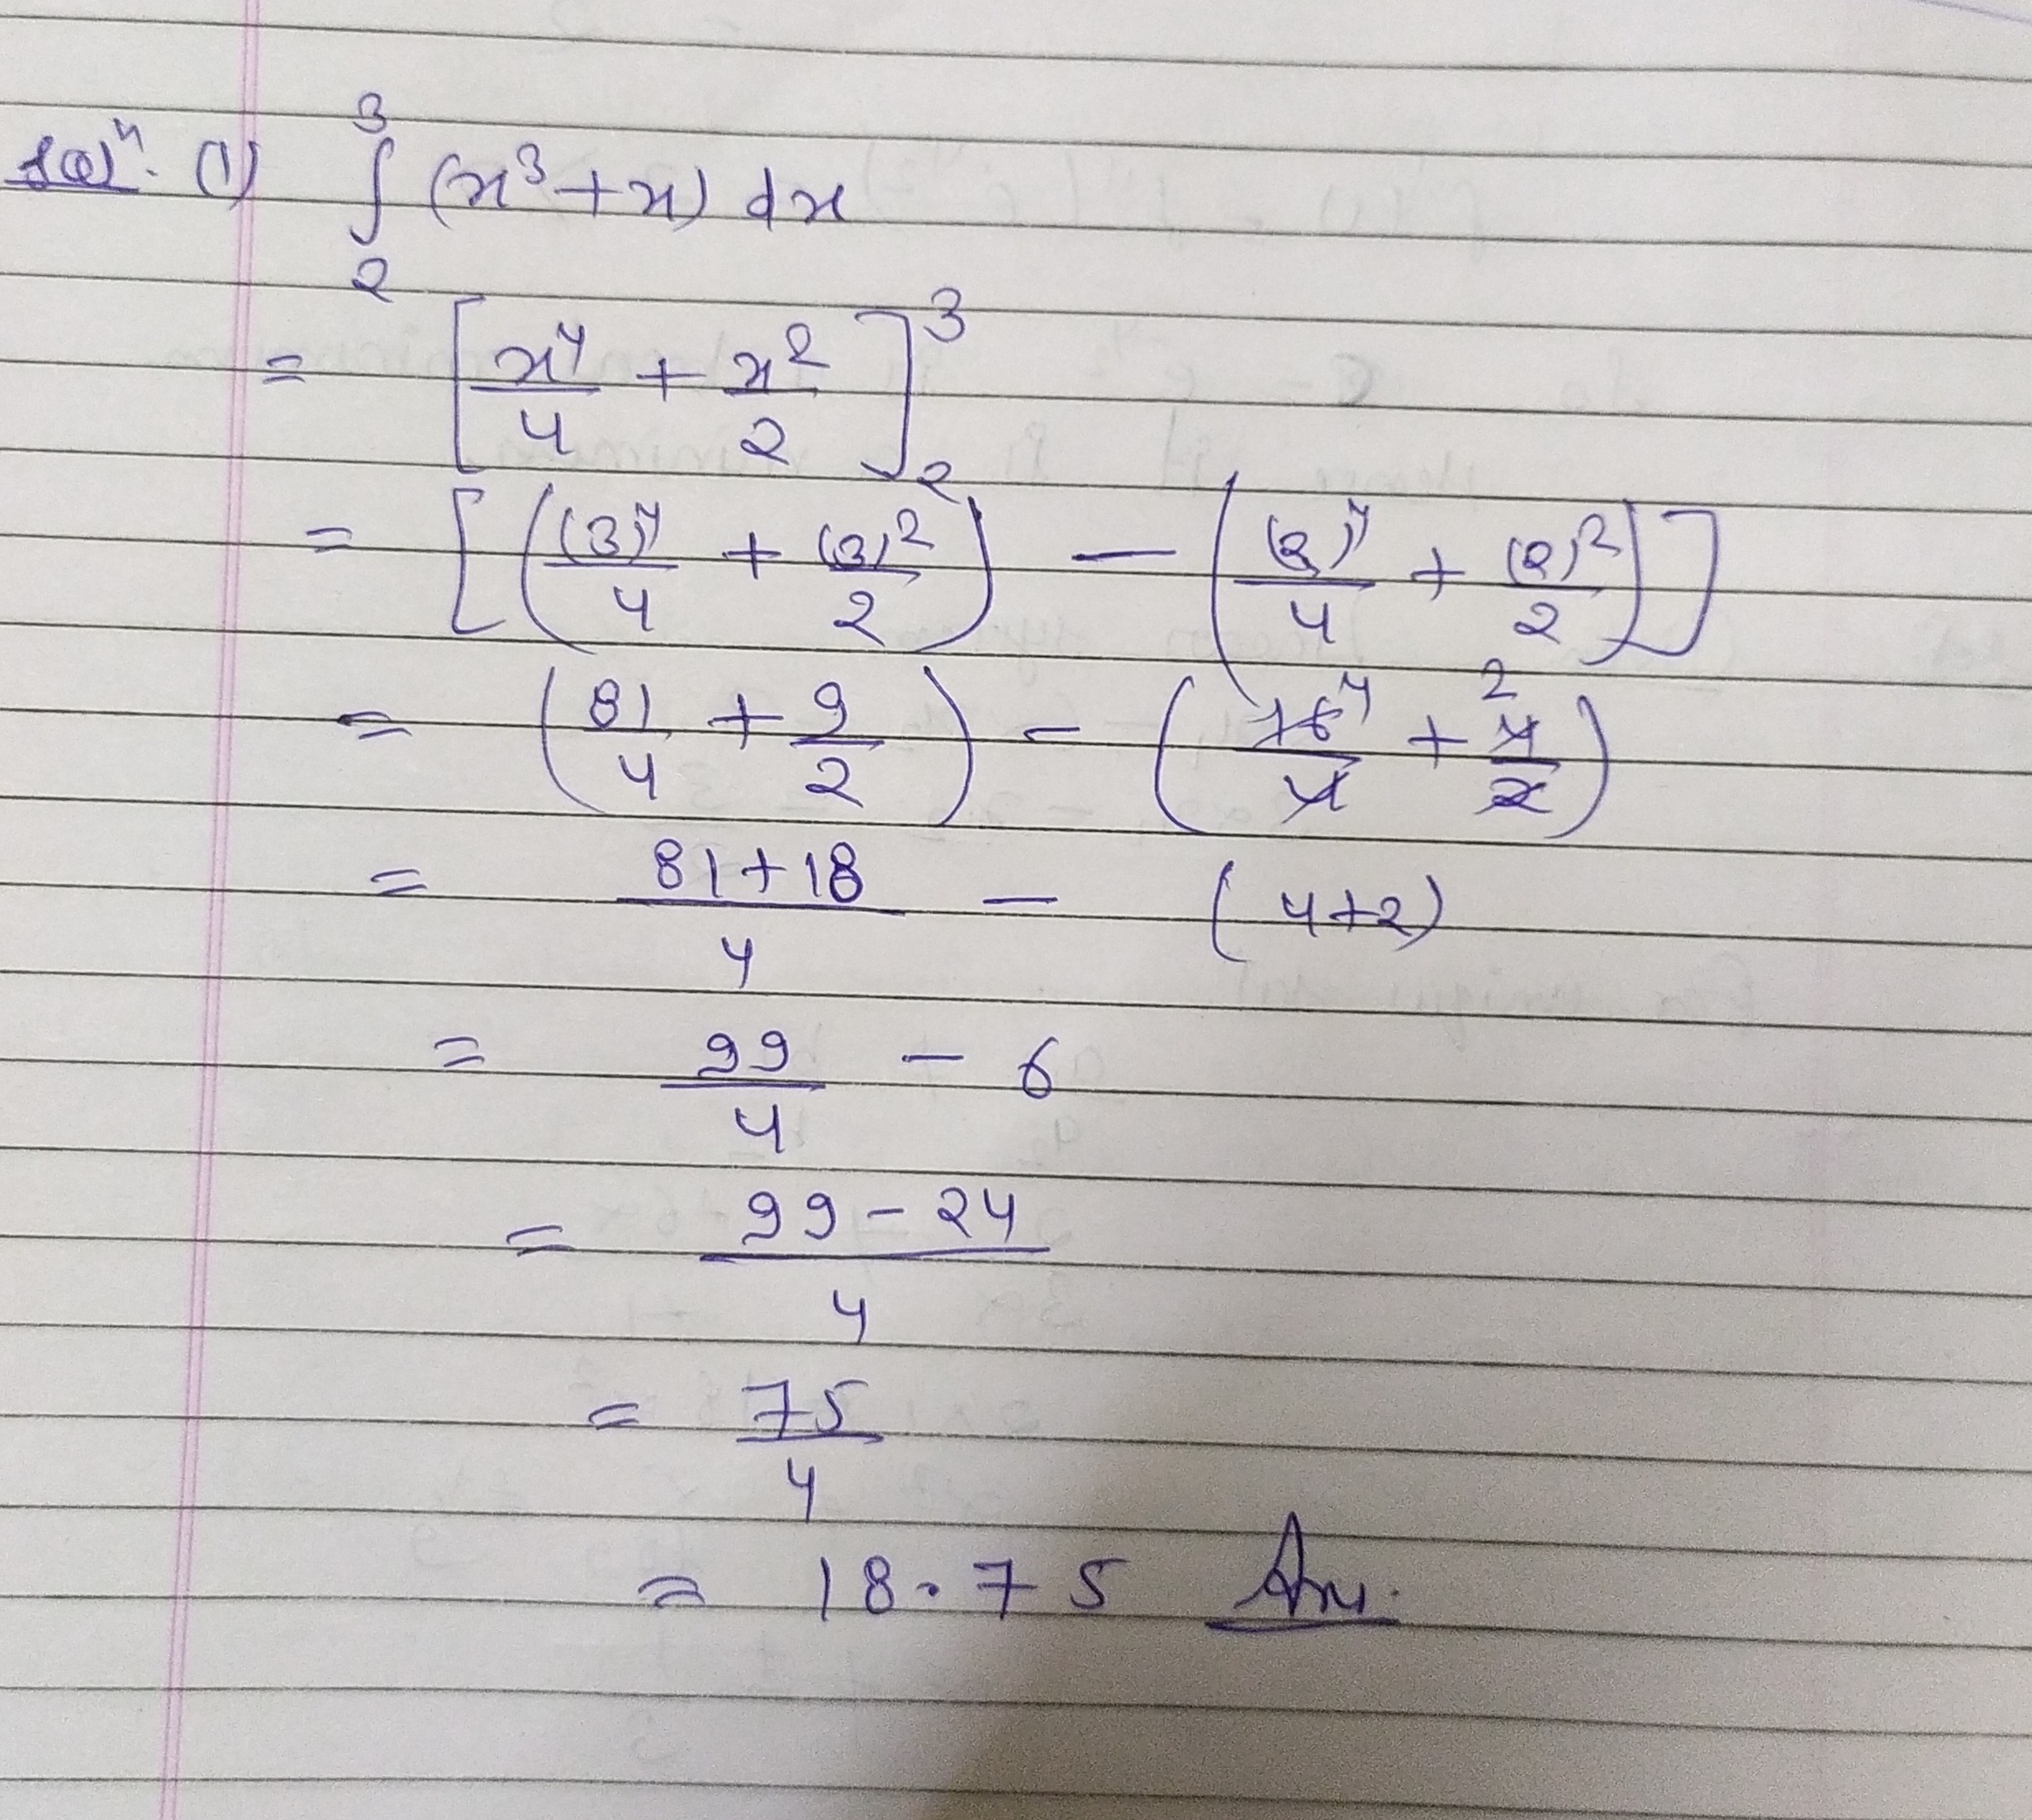 Solⁿ. (1) ∫₂³ (x³+x) dx
= [x⁴/4 + x²/2]₂³
= [((3)⁴/4 + (3)²/2) − ((2)⁴/4 + (2)²/2)]
= (81/4 + 9/2) − (16⁴/4 + 4²/2)
= 81+18/4 − (4+2)
= 99/4 − 6
= 99−24/4
= 75/4
= 18.75 Ans.